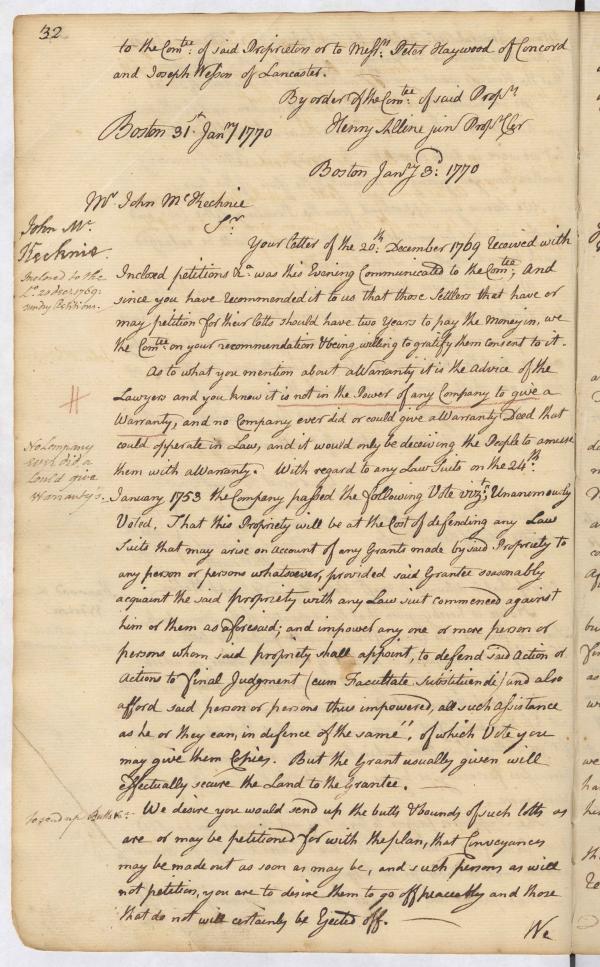 32
to the Comtee. of said Proprietors or to Messrs. Peter Haywood of Concord
and Joseph Wesson of Lancaster.
By order of the Comtee. of said Proprs.
Boston 31st. Janry 1770
Henry Alline junr Proprs. Cler
Boston Janry 3d: 1770
Mr. John McKechnie
Sr.
John Mc.
Kechnie.
Your Letter of the 20th. December 1769 received with
Inclosed petitions &ca. was this Evening Communicated to the Comtee; And
since you have recommended it to us that those Settlers that have or
may petition for their lotts should have two Years to pay the Money in, we
the Comtee. on your recommendation & being willing to gratify them Consent to it.
As to what you mention about a Warranty it is the Advice of the
Lawyers and you know it is not in the Power of any Company to give a
Warranty, and no Company ever did or could give a Warranty Deed that
could opperate in Law, and it would only be deceiving the People to amuse
them with a Warranty. With regard to any Law Suits on the 24th.
January 1753 the Company passed the following Vote vizt. Unanemously
Voted, That this Propriety will be at the Cost of defending any Law
Suits that may arise on Account of any Grants made by said Propriety to
any person or persons whatsoever, provided said Grantee seasonably
acquaint the said propriety with any Law suit commenced against
him or them as aforesaid; and impower any one or more person or
persons whom said propriety shall appoint, to defend said Action or
Actions to Final Judgment (cum Facultate Substituende) and also
afford said person or persons thus impowered, all such Assistance
as he or they can, in defence of the same", of which Vote you
may give them Copies. But the Grant usually given will
effectually secure the Land to the Grantee.
We desire you would send up the butts & bounds of such lotts as
are or may be petitioned for with the plan, that Conveyances
may be made out as soon as may be, and such persons as will
not petition, you are to desire them to go off peaceably and those
that do not will certainly be Ejected off.
We
Inclosed to the
Lr. 20 Decr. 1769.
sundry Petitions.
No Company
ever did or
Could give
Warranty's.
to send up Butts &c: